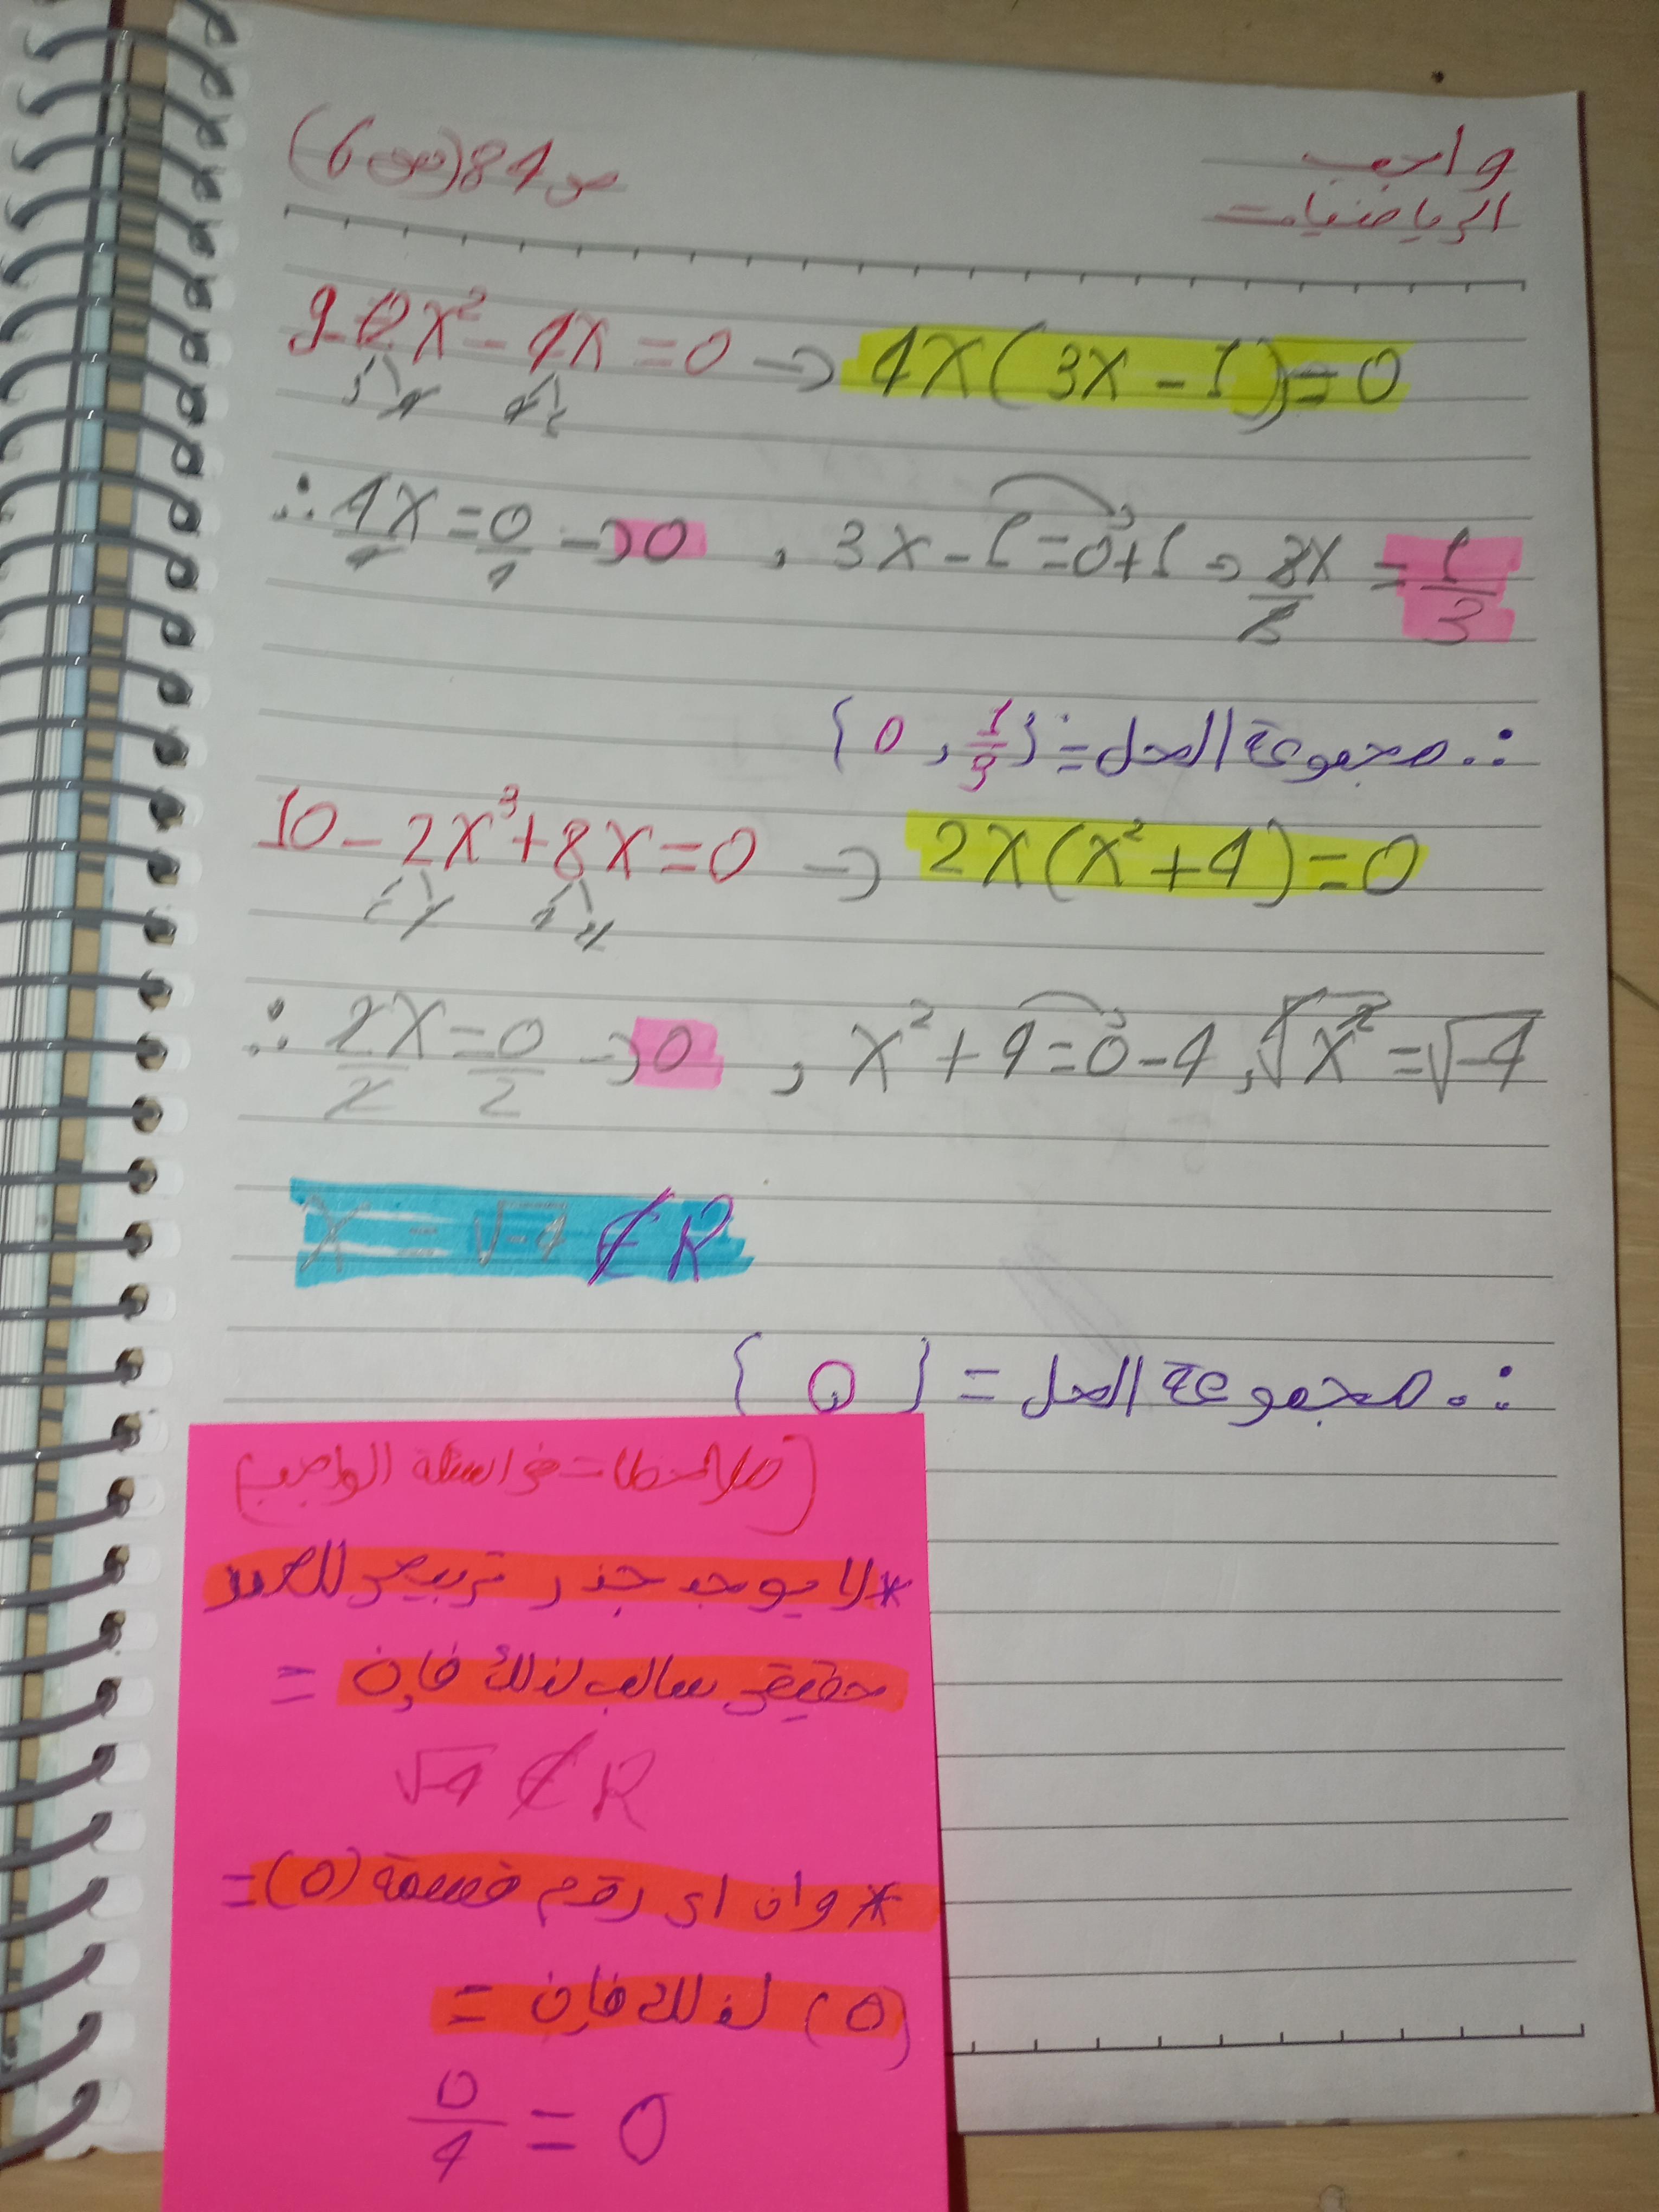 واجب
الرياضيات
ص84(ص6)
9-12x²-4x=0 → 4x(3x-1)=0
∴ 4x/4=0/4 → 0 , 3x-1=0+1 → 3x/3 = 1/3
∴ مجموعة الحل = {0, 1/3}
10-2x³+8x=0 → 2x(x²+4)=0
∴ 2x/2=0/2 → 0 , x²+4=0-4 , √x²=√-4
x = √-4 ∉ R
∴ مجموعة الحل = {0}
(ملاحظات في اسئلة الواجب)
*لا يوجد جذر تربيعي للعدد
حقيقي سالب لذلك فإن =
√-4 ∉ R
*وان اي رقم قسمة (0)=
(0) لذلك فإن =
0/4 = 0